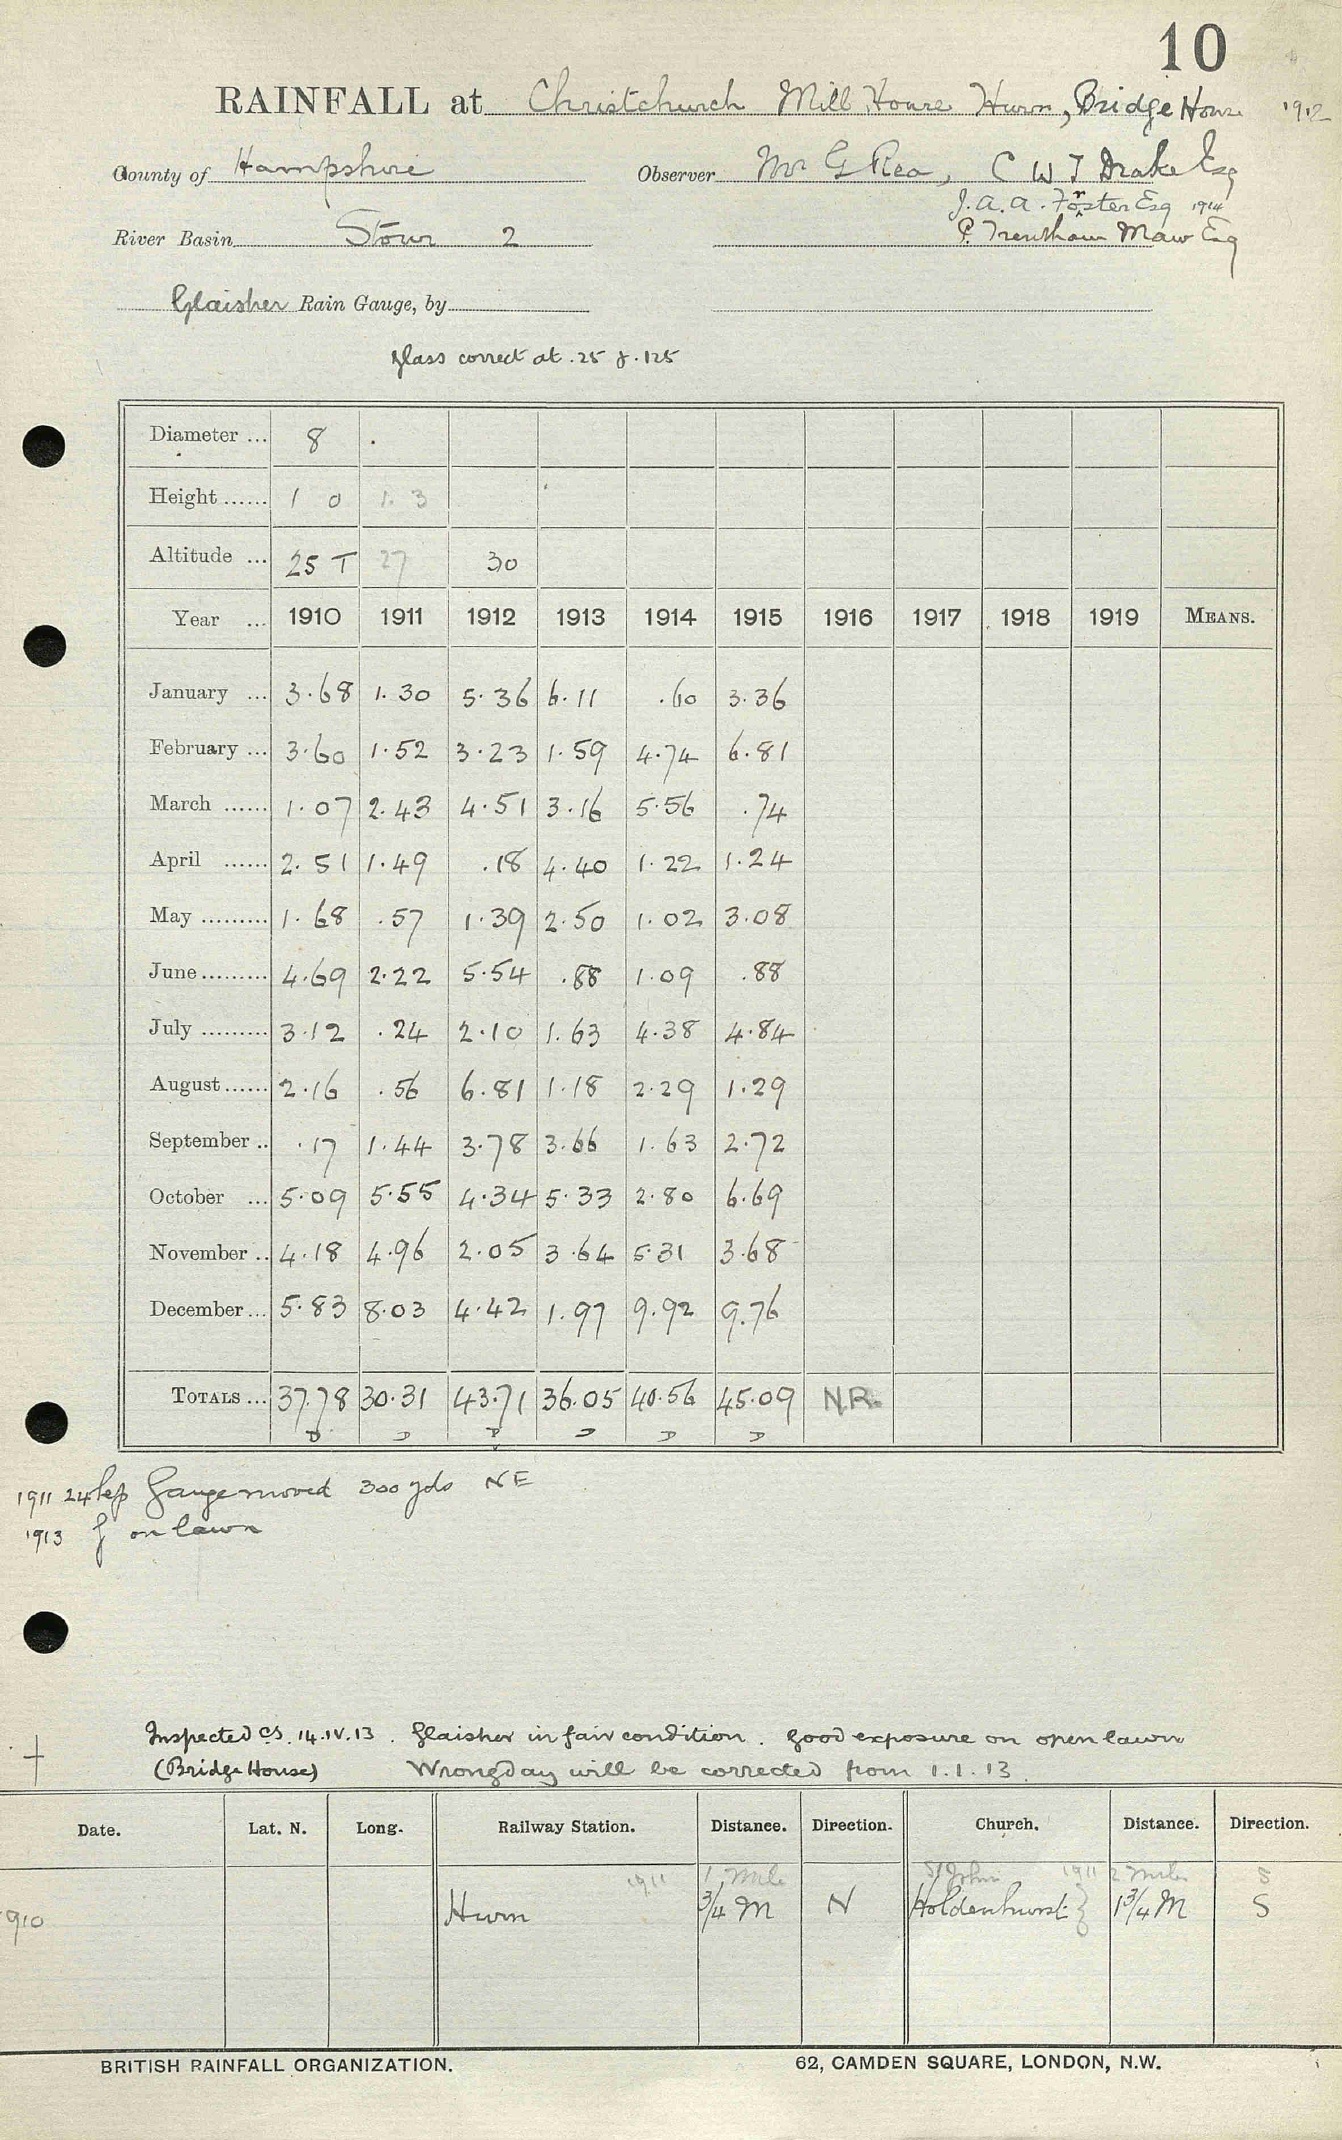 10
RAINFALL at Christchurch Mill House Hurn, Bridge House 1912
County of Hampshire Observer Mr G Rea, C W T Drake Esq
J. A. A. Forster Esq 1914
River Basin Stour 2 P. Trentham Maw Esq
Glaisher Rain Gauge, by
glass correct at .25 & .125
Diameter ... 8
Height ...... 1 0 1. 3
Altitude ... 25 T 27 30
Year ... 1910 1911 1912 1913 1914 1915 1916 1917 1918 1919 MEANS.
January ... 3.68 1.30 5.36 6.11 .60 3.36
February ... 3.60 1.52 3.23 1.59 4.74 6.81
March ...... 1.07 2.43 4.51 3.16 5.56 .74
April ...... 2.51 1.49 .18 4.40 1.22 1.24
May ......... 1.68 .57 1.39 2.50 1.02 3.08
June ......... 4.69 2.22 5.54 .88 1.09 .88
July ......... 3.12 .24 2.10 1.63 4.38 4.84
August ...... 2.16 .56 6.81 1.18 2.29 1.29
September .. .17 1.44 3.78 3.66 1.63 2.72
October ... 5.09 5.55 4.34 5.33 2.80 6.69
November .. 4.18 4.96 2.05 3.64 5.31 3.68
December ... 5.83 8.03 4.42 1.97 9.92 9.76
TOTALS ... 37.78 30.31 43.71 36.05 40.56 45.09 N.R.
D D D D D D
1911 24 Sep Gauge moved 300 yds NE
1913 g on lawn
Inspected CS. 14.IV.13. Glaisher in fair condition. Good exposure on open lawn
(Bridge House) Wrong day will be corrected from 1.1.13.
Date. Lat. N. Long. Railway Station. Distance. Direction. Church. Distance. Direction.
1911 1 Mile St John 1911 2 Miles S
910 Hurn 3/4 M N Holdenhurst 1 3/4 M S
BRITISH RAINFALL ORGANIZATION. 62, CAMDEN SQUARE, LONDON, N.W.